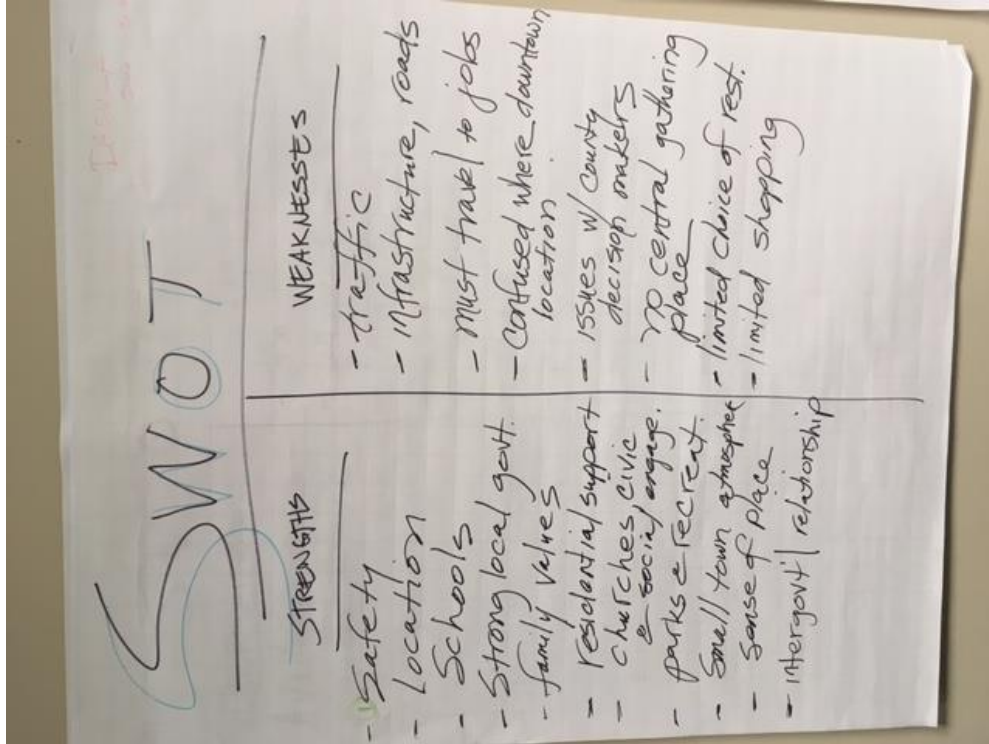 SWOT
STRENGTHS
- Safety
- Location
- Schools
- Strong local govt.
- family values
- residential support
- churches civic
& social engage.
- parks & recreat.
- Small town atmosphere
- sense of place
- intergovt'l relationship
WEAKNESSES
- traffic
- infrastructure, roads
- must travel to jobs
- Confused where downtown
location
- issues w/ County
decision makers
- no central gathering
place
- limited choice of rest.
- limited shopping